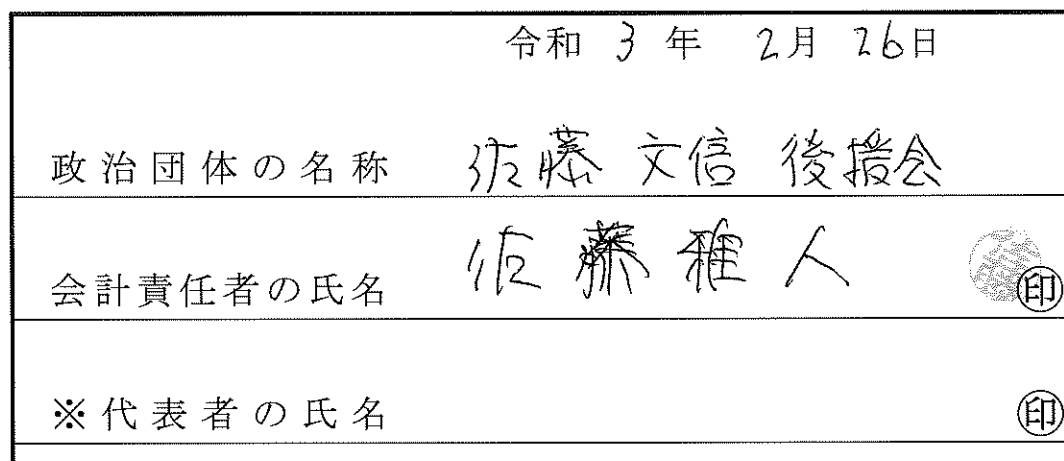 令和 3 年 2月 26日
政治団体の名称 佐藤 文信 後援会
会計責任者の氏名 佐藤 雅人 印
※代表者の氏名 印